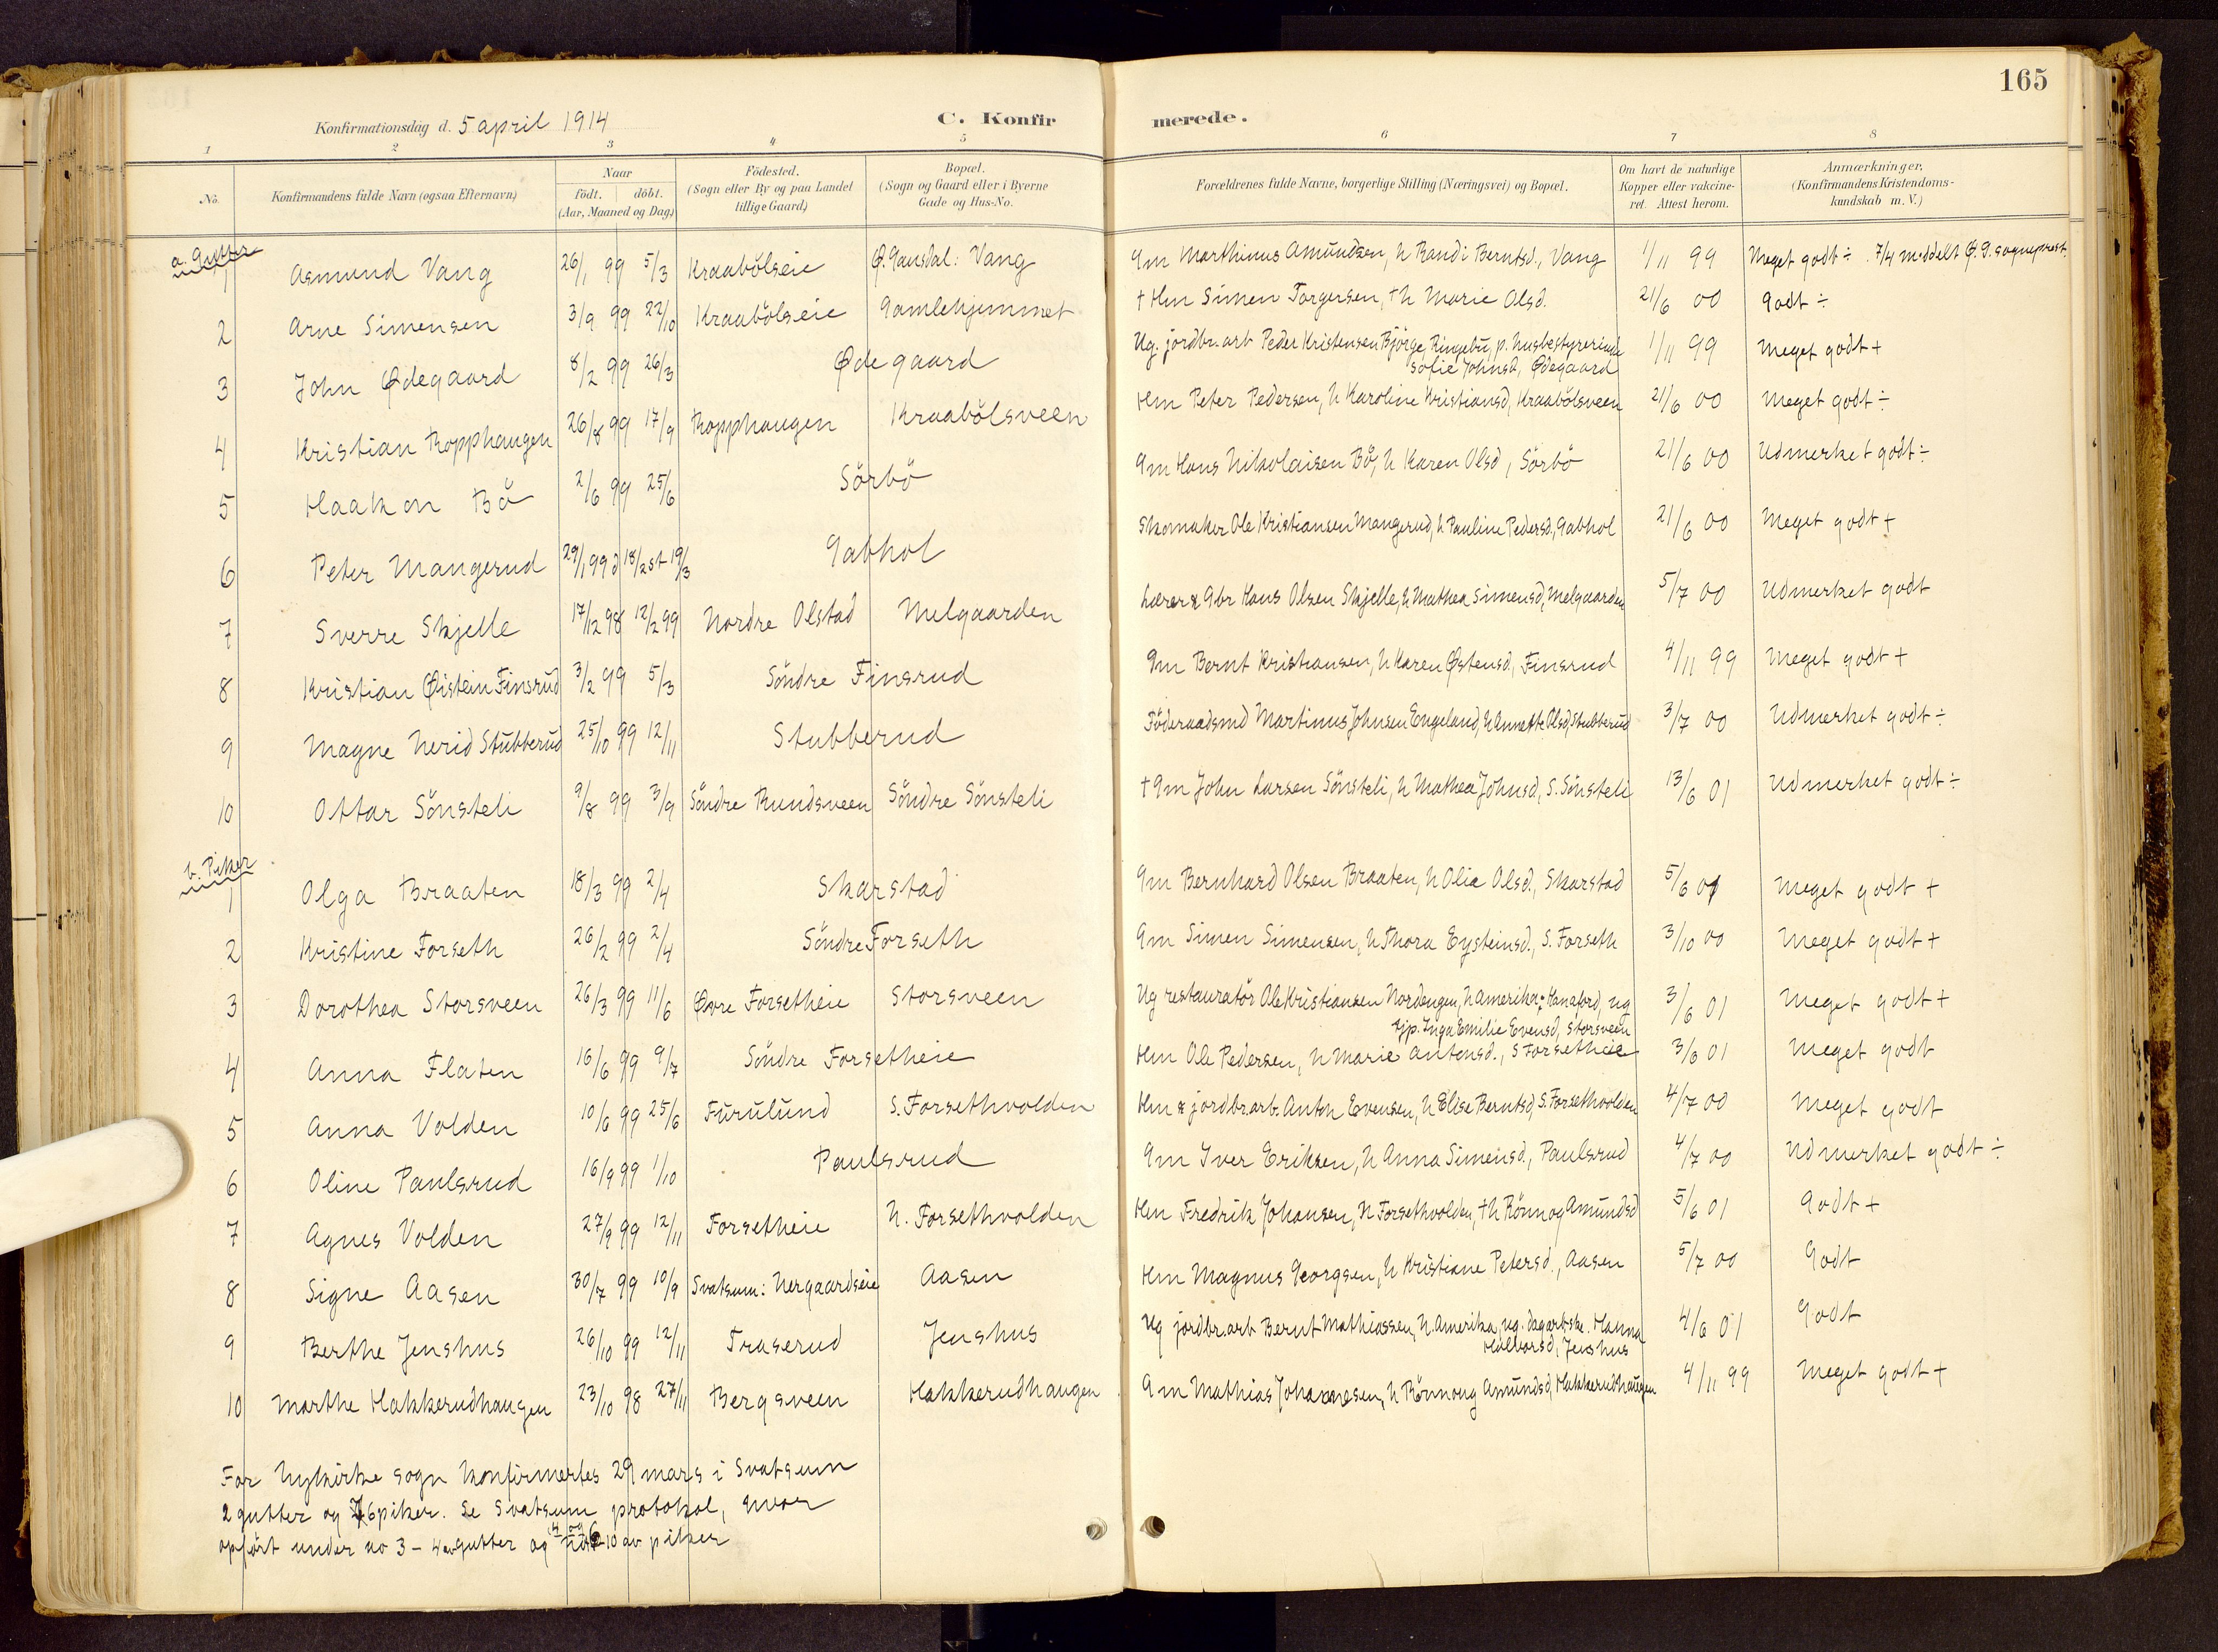 165
Konfirmationsdag d. 5 april 1914
C. Konfirmerede.
1 2 3 4 5 6 7 8
No. Konfirmandens fulde Navn (ogsaa Efternavn) Naar födt. döbt. (Aar, Maaned og Dag.) Födested. (Sogn eller By og paa Landet tillige Gaard) Bopæl. (Sogn og Gaard eller i Byerne Gade og Hus-No. Forældrenes fulde Navne, borgerlige Stilling (Næringsvei) og Bopæl. Om havt de naturlige Kopper eller vakcineret. Attest herom. Anmærkninger. (Konfirmandens Kristendomskundskab m. V.)
a. Gutter
1 Asmund Vang 26/1 99 5/3 Kraabölseie Ø. Gausdal: Vang Gm Marthinus Amundsen, h Randi Berntsd., Vang 1/11 99 Meget godt ÷ . 7/4 meddelt Ø. G. sogneprest.
2 Arne Simensen 3/9 99 22/10 Kraabölseie Gamlehjemmet † Hm Simen Torgersen, † h Marie Olsd. 21/6 00 Godt ÷
3 John Ødegaard 8/2 99 26/3 Ødegaard Ug. jordbr.arb Peder Kristensen Bjørge, Ringebu, p. husbestyrerinde Sofie Johnsd, Ødegaard 1/11 99 Meget godt +
4 Kristian Ropphaugen 26/8 99 17/9 Ropphaugen Kraabölsveen Hm Peter Pedersen, h Karoline Kristiansd, Kraabölsveen 21/6 00 Meget godt ÷
5 Haakon Bö 2/6 99 25/6 Sörbö Gm Hans Nikolaisen Bö, h Karen Olsd, Sörbö 21/6 00 Udmerket godt ÷
6 Peter Mangerud 29/1 99 d 18/2 st 19/3 Gabhol Skomaker Ole Kristiansen Mangerud, h Pauline Pedersd, Gabhol 21/6 00 Meget godt +
7 Sverre Skjelle 17/12 98 12/2 99 Nordre Olstad Melgaarden Lærer & Gbr Hans Olsen Skjelle, h Mathea Simensd, Melgaarden 5/7 00 Udmerket godt
8 Kristian Øistein Finsrud 3/2 99 5/3 Söndre Finsrud Gm Bernt Kristiansen, h Karen Østensd, Finsrud 4/11 99 Meget godt +
9 Magne Nerid Stubberud 25/10 99 12/11 Stubberud Föderaadsmd Martinus Johnsen Engeland, h Annette Olsd, Stubberud 3/7 00 Udmerket godt ÷
10 Ottar Sönsteli 9/8 99 3/9 Söndre Rundsveen Söndre Sönsteli † Gm John Larsen Sönsteli, h Mathea Johnsd, S. Sönsteli 13/6 01 Udmerket godt ÷
b. Piker
1 Olga Braaten 18/3 99 2/4 Skarstad Gm Bernhard Olsen Braaten, h Olia Olsd., Skarstad 5/6 01 Meget godt +
2 Kristine Forseth 26/2 99 2/4 Söndre Forseth Gm Simen Simensen, h Thora Eysteinsd., S. Forseth 3/10 00 Meget godt +
3 Dorothea Storsveen 26/3 99 11/6 Øvre Forsetheie Storsveen Ug restauratör Ole Kristiansen Nordengen, N Amerika; Hanaford, ug tjp. Inga Emilie Evensd, Storsveen 3/6 01 Meget godt +
4 Anna Flaten 16/6 99 9/7 Söndre Forsetheie Hm Ole Pedersen, h Marie Antonsd., S Forsetheie 3/6 01 Meget godt
5 Anna Volden 10/6 99 25/6 Furulund S. Forsethvolden Hm & jordbr.arb. Anton Evensen, h Elise Berntsd, S. Forsethvolden 4/7 00 Meget godt
6 Oline Paulsrud 16/9 99 1/10 Paulsrud Gm Iver Eriksen, h Anna Simensd., Paulsrud 4/7 00 Udmerket godt ÷
7 Agnes Volden 27/9 99 12/11 Forsetheie N. Forsethvolden Hm Fredrik Johansen, N Forsethvolden, † h Rönnog Amundsd 5/6 01 Godt +
8 Signe Aasen 30/7 99 10/9 Svatsum: Nergaardseie Aasen Hm Magnus Georgsen, h Kristiane Petersd., Aasen 5/7 00 Godt
9 Berthe Jenshus 26/10 99 12/11 Traserud Jenshus Ug jordbr.arb Bernt Mathiassen, N. Amerika, ug. dagarbske. Hanna Halvorsd, Jenshus 4/6 01 Godt
10 Marthe Hakkerudhaugen 23/10 98 27/11 Bergsveen Hakkerudhaugen Gm Mathias Johannesen, h Rönnoug Amundsd, Hakkerudhaugen 4/11 99 Meget godt +
For Nykirke sogn konfirmertes 29 mars i Svatsum
2 gutter og 6 piker. Se Svatsum protokol,
opført under no 3 - 4 av gutter og 4 og 6-10 av piker